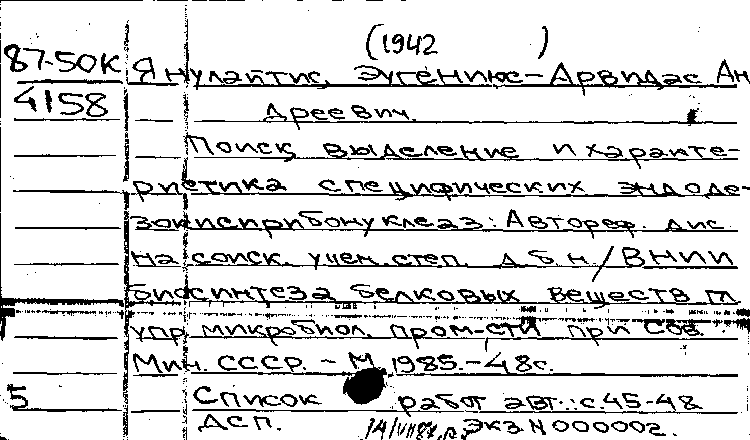 (1942 )
87-50К Янулайтис, Эугениюс-Арвидас Ан
4158 дреевич.
Поиск, выделение и характе-
ристика специфических эндоде-
зоксирибонуклеаз: Автореф. дис
на соиск. учен. степ. д.б.н./ВНИИ
биосинтеза белковых веществ Гл
упр. микробиол. пром-сти при Сов.
Мин. СССР. - М, 1985. - 48с.
5 Список работ авт.: с.45-48
ДСП. Экз N 000002.